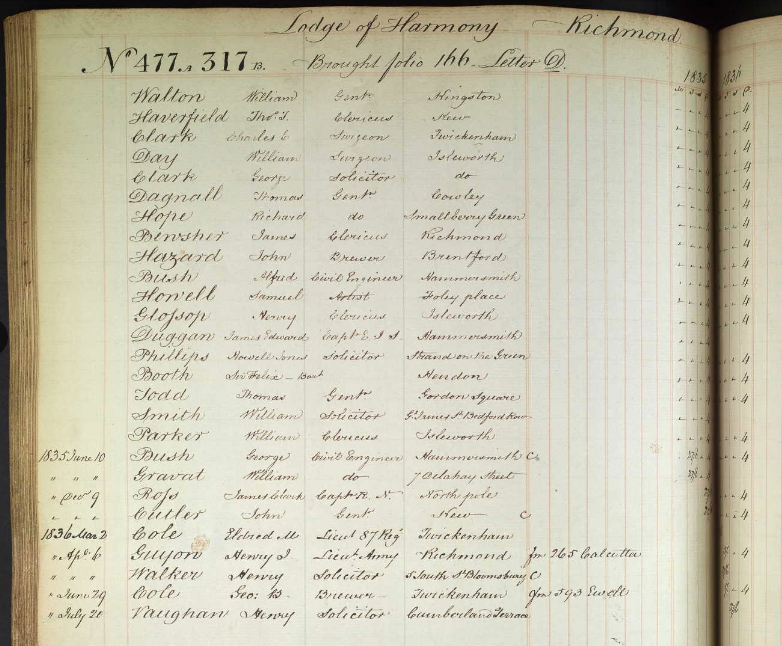 Lodge of Harmony Richmond
No 477.A 317 B. Brought folio 166 Letter D.
1835 1836
Walton William Gent Kingston
Haverfield Thos. T. Clericus Kew
Clark Charles C Surgeon Twickenham
Day William Surgeon Isleworth
Clark George Solicitor do
Dagnall Thomas Gent Cowley
Hope Richard do Smallberry Green
Bewsher James Clericus Richmond
Hazard John Brewer Brentford
Bush Alfred Civil Engineer Hammersmith
Howell Samuel Artist Foley place
Glossop Henry Clericus Isleworth
Duggan James Edward Capt E. I. S. Hammersmith
Phillips Howell Jones Solicitor Strand on the Green
Booth Sir Felix - Bart Hendon
Todd Thomas Gent Gordon Square
Smith William Solicitor Gt James St Bedford Row
Parker William Clericus Isleworth
1835 June 10 Bush George Civil Engineer Hammersmith C
" " " Gravat William do 7 Delahay Street
" Decr 9 Ross James Clark Capt R. N. North pole
" " " Cutler John Gent Kew C
1836 Mar 2 Cole Eldred M Lieut 87 Reg Twickenham
" Apl 6 Guyon Henry J. Lieut. Army Richmond fm 265 Calcutta
" " " Walker Henry Solicitor 5 South St Bloomsbury C
" June 29 Cole Geo: B. Brewer Twickenham fm 593 Ewell
" July 20 Vaughan Henry Solicitor Cumberland Terrace